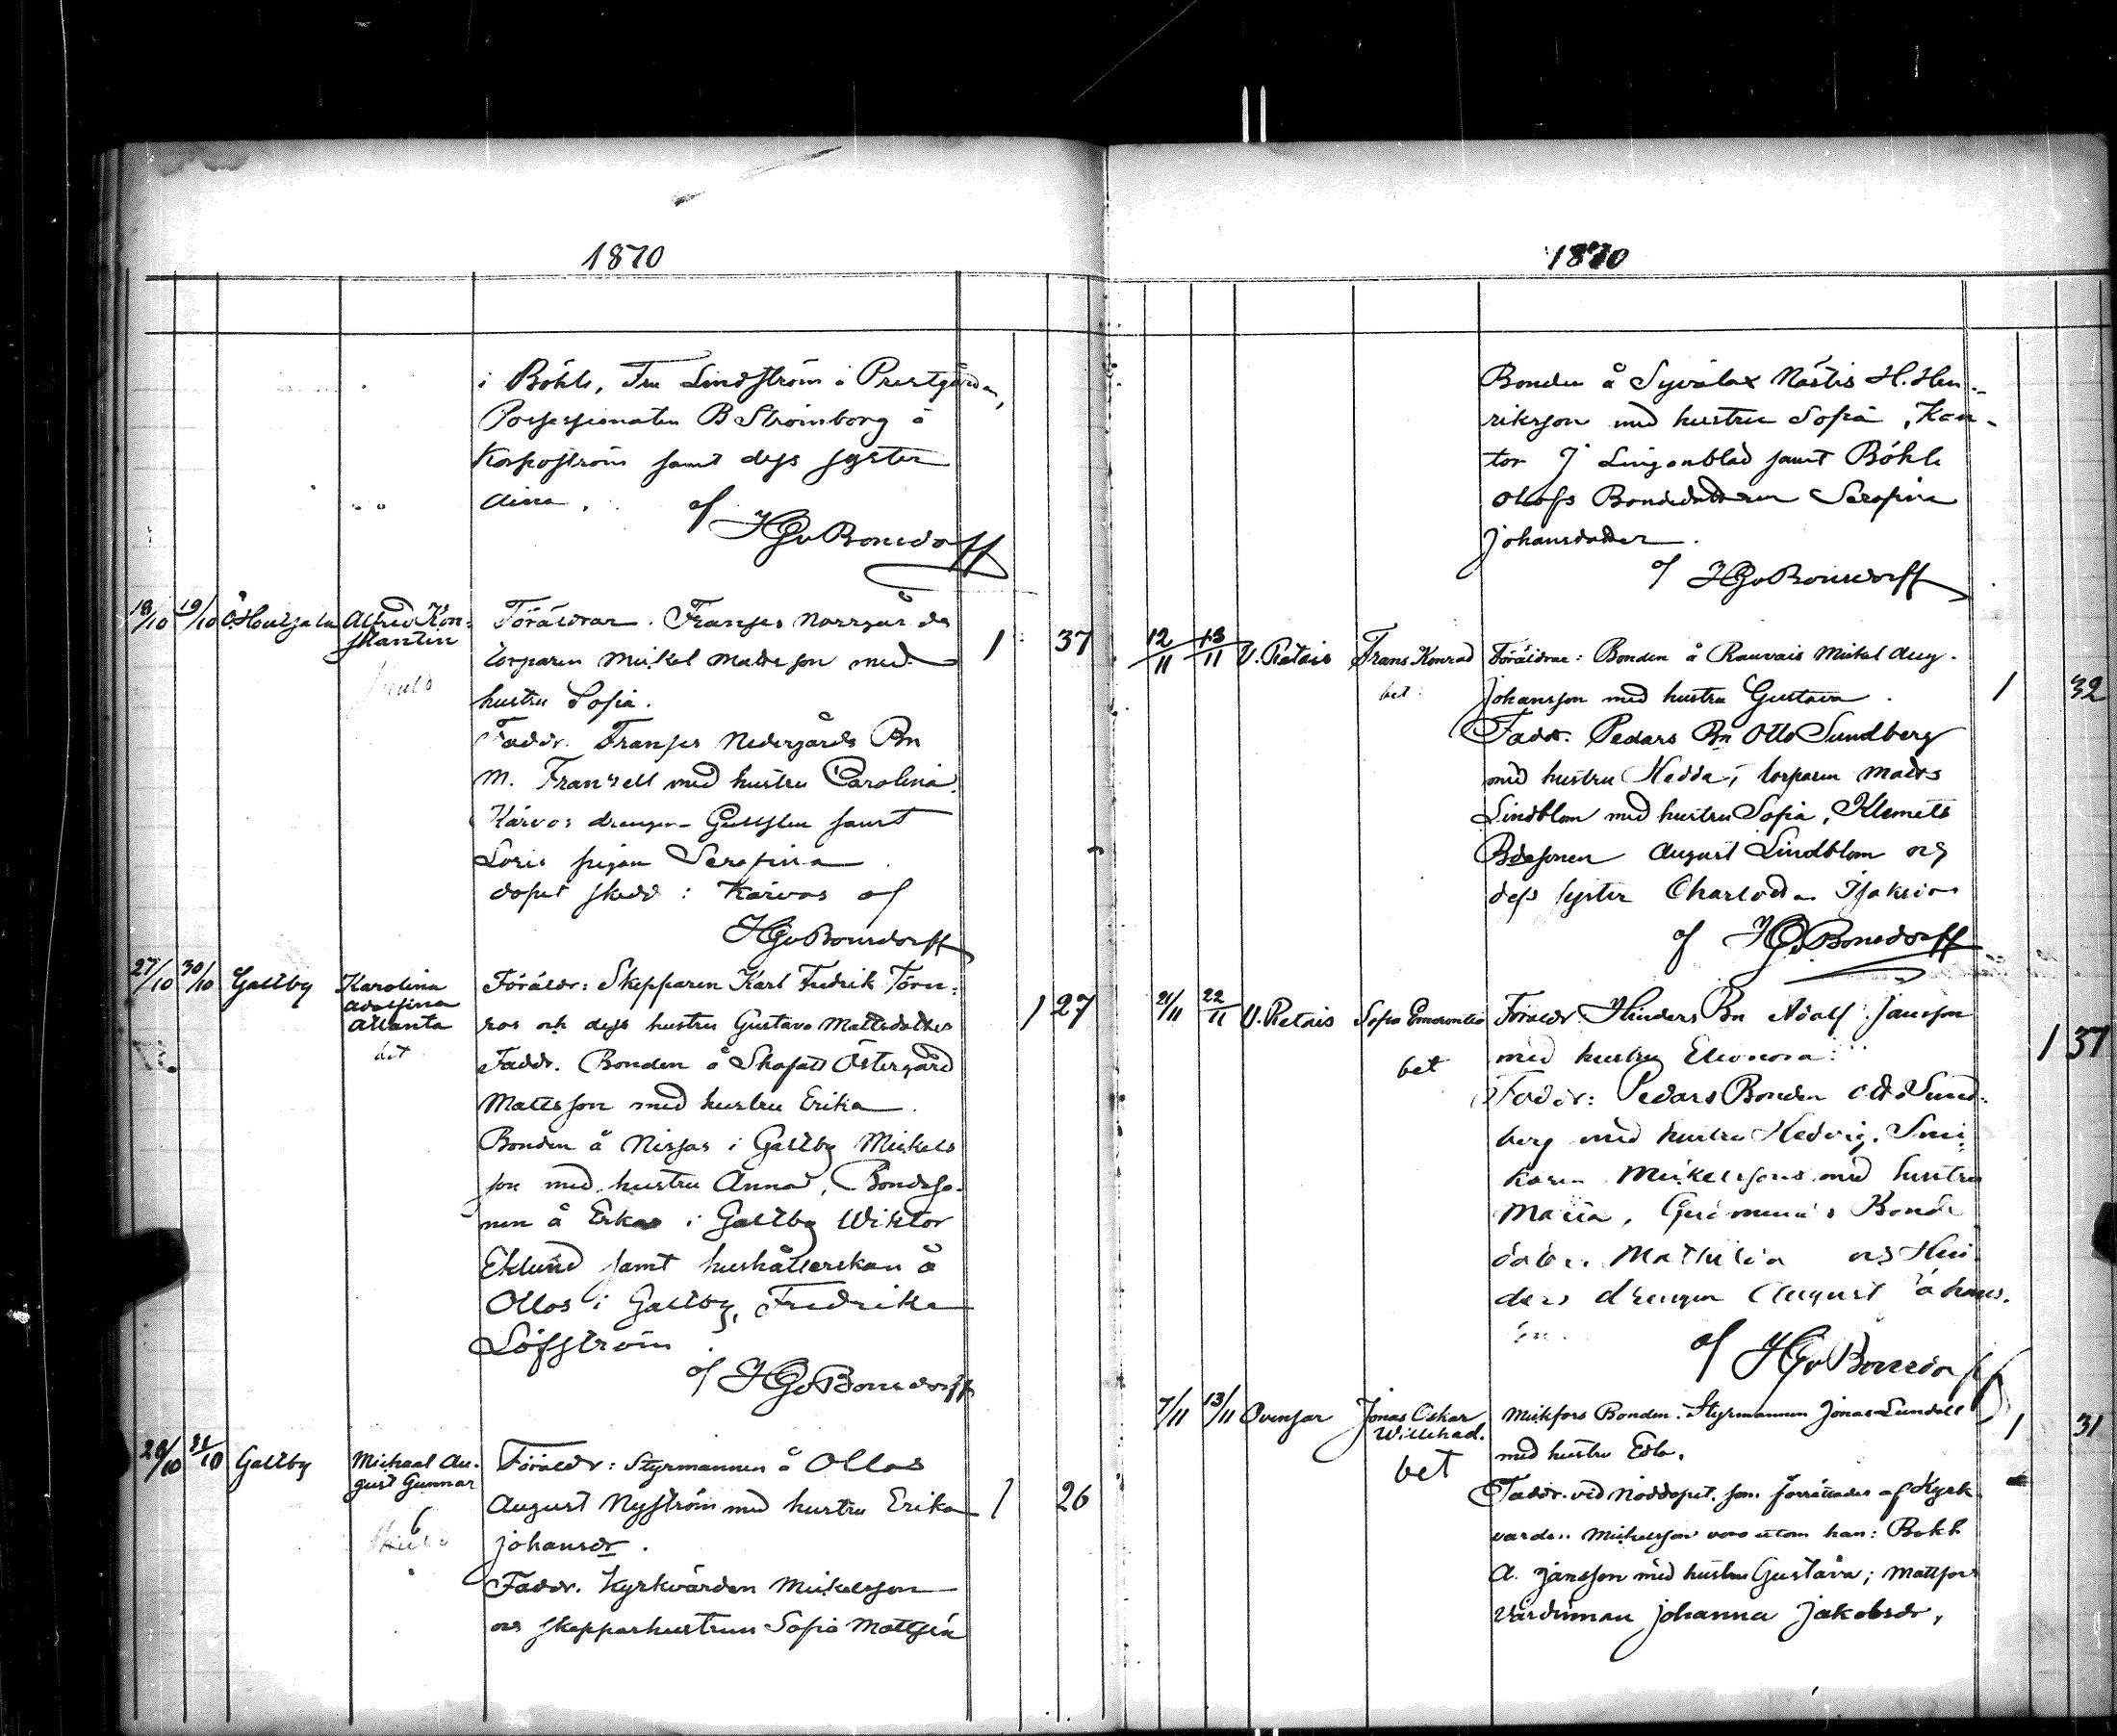 1870
i Böhle, Fru Lindström i Prestgården,
Possessionaten B Strömborg å
Korpoström samt dess syster
Aina. af
HGvBonsdorff
18/10 19/10 Ö. Houtsala Alfred Kon-
stantin
skuld
Föräldrar. Franses Norrgårds
torparen Mickel Mattsson med 1 37
hustru Sofia.
Faddr. Franses Nedergårds Bn
M. Franzell med hustru Carolina,
Kärvos drengen Gustav samt
pigan Serafina
dopet skedd i Kärvos af
HGvBonsdorff
27/10 30/10 Galtby Karolina
Adolfina
Atlanta
bet
Föräldr: Skepparen Karl Fredrik Törn-
ros och dess hustru Gustava Mattsdotter 1 27
Faddr. Bonden å Skafatt Östergård
Mattsson med hustru Erika
Bonden å Nissas i Galtby Mickels
son med hustru Anna, Bondeso-
nen å Erkas i Galtby Wiktor
Eklund samt hushållerskan å
Ollas i Galtby, Fredrika
Löfström
af HGvBonsdorff
28/10 31/10 Galtby Michael Au-
gust Gunnar
skuld
Föräldr: Styrmannen å Ollas
August Nyström med hustru Erika 1 26
Johansdr.
Faddr. Kyrkvärden Mickelsson
och skepparhustrun Sofia Mattsén
1870
Bonden å Syvälax Mästis H. Hen-
riksson med hustru Sofia, Kan-
tor J Lingonblad samt Böhle
Olofs Bondedottren Serafina
Johansdotter.
af HGvBonsdorff
12/11 13/11 V. Retais Frans Konrad
bet
Föräldrar: Bonden å Rauvais Mickel Aug.
Johansson med hustru Gustava. 1 32
Faddr. Pedars Bn Otto Sundberg
med hustru Hedda, torparen Matts
Lindblom med hustru Sofia, Klemets
Bdesonen August Lindblom och
dess syster Charlotta
af HGvBonsdorff
21/11 22/11 V. Retais Sofia Emerentia
bet
Föräldr. Hinders Bn Adolf Jansson
med hustru Eleonora. 1 37
Faddr: Pedars Bonden Otto Sund-
berg med hustru Hedvig, Smi-
karen Mickelssons med hustru
Maria, Gudmunds Bonde
dotter Mathilda och Hin-
ders drengen August Johans-
son.
af HGvBonsdorff
7/11 13/11 Ovensor Jonas Oskar
Willehad.
bet
Mickfors Bonden, Styrmannen Jonas Lundell 1 31
med hustru Edla.
Faddr. vid Nöddopet, som förrättades af Kyrk
varden Mickelsson voro utom han: Bokh
A. Jansson med hustru Gustava; Mattfors
Värdinnan Johanna Jakobsdr,